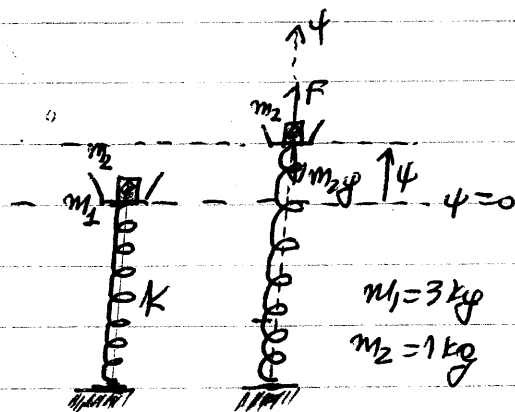 ψ
F
m₂
m₂
m₂g
ψ
m₁
ψ=0
K
m₁=3kg
m₂=1kg